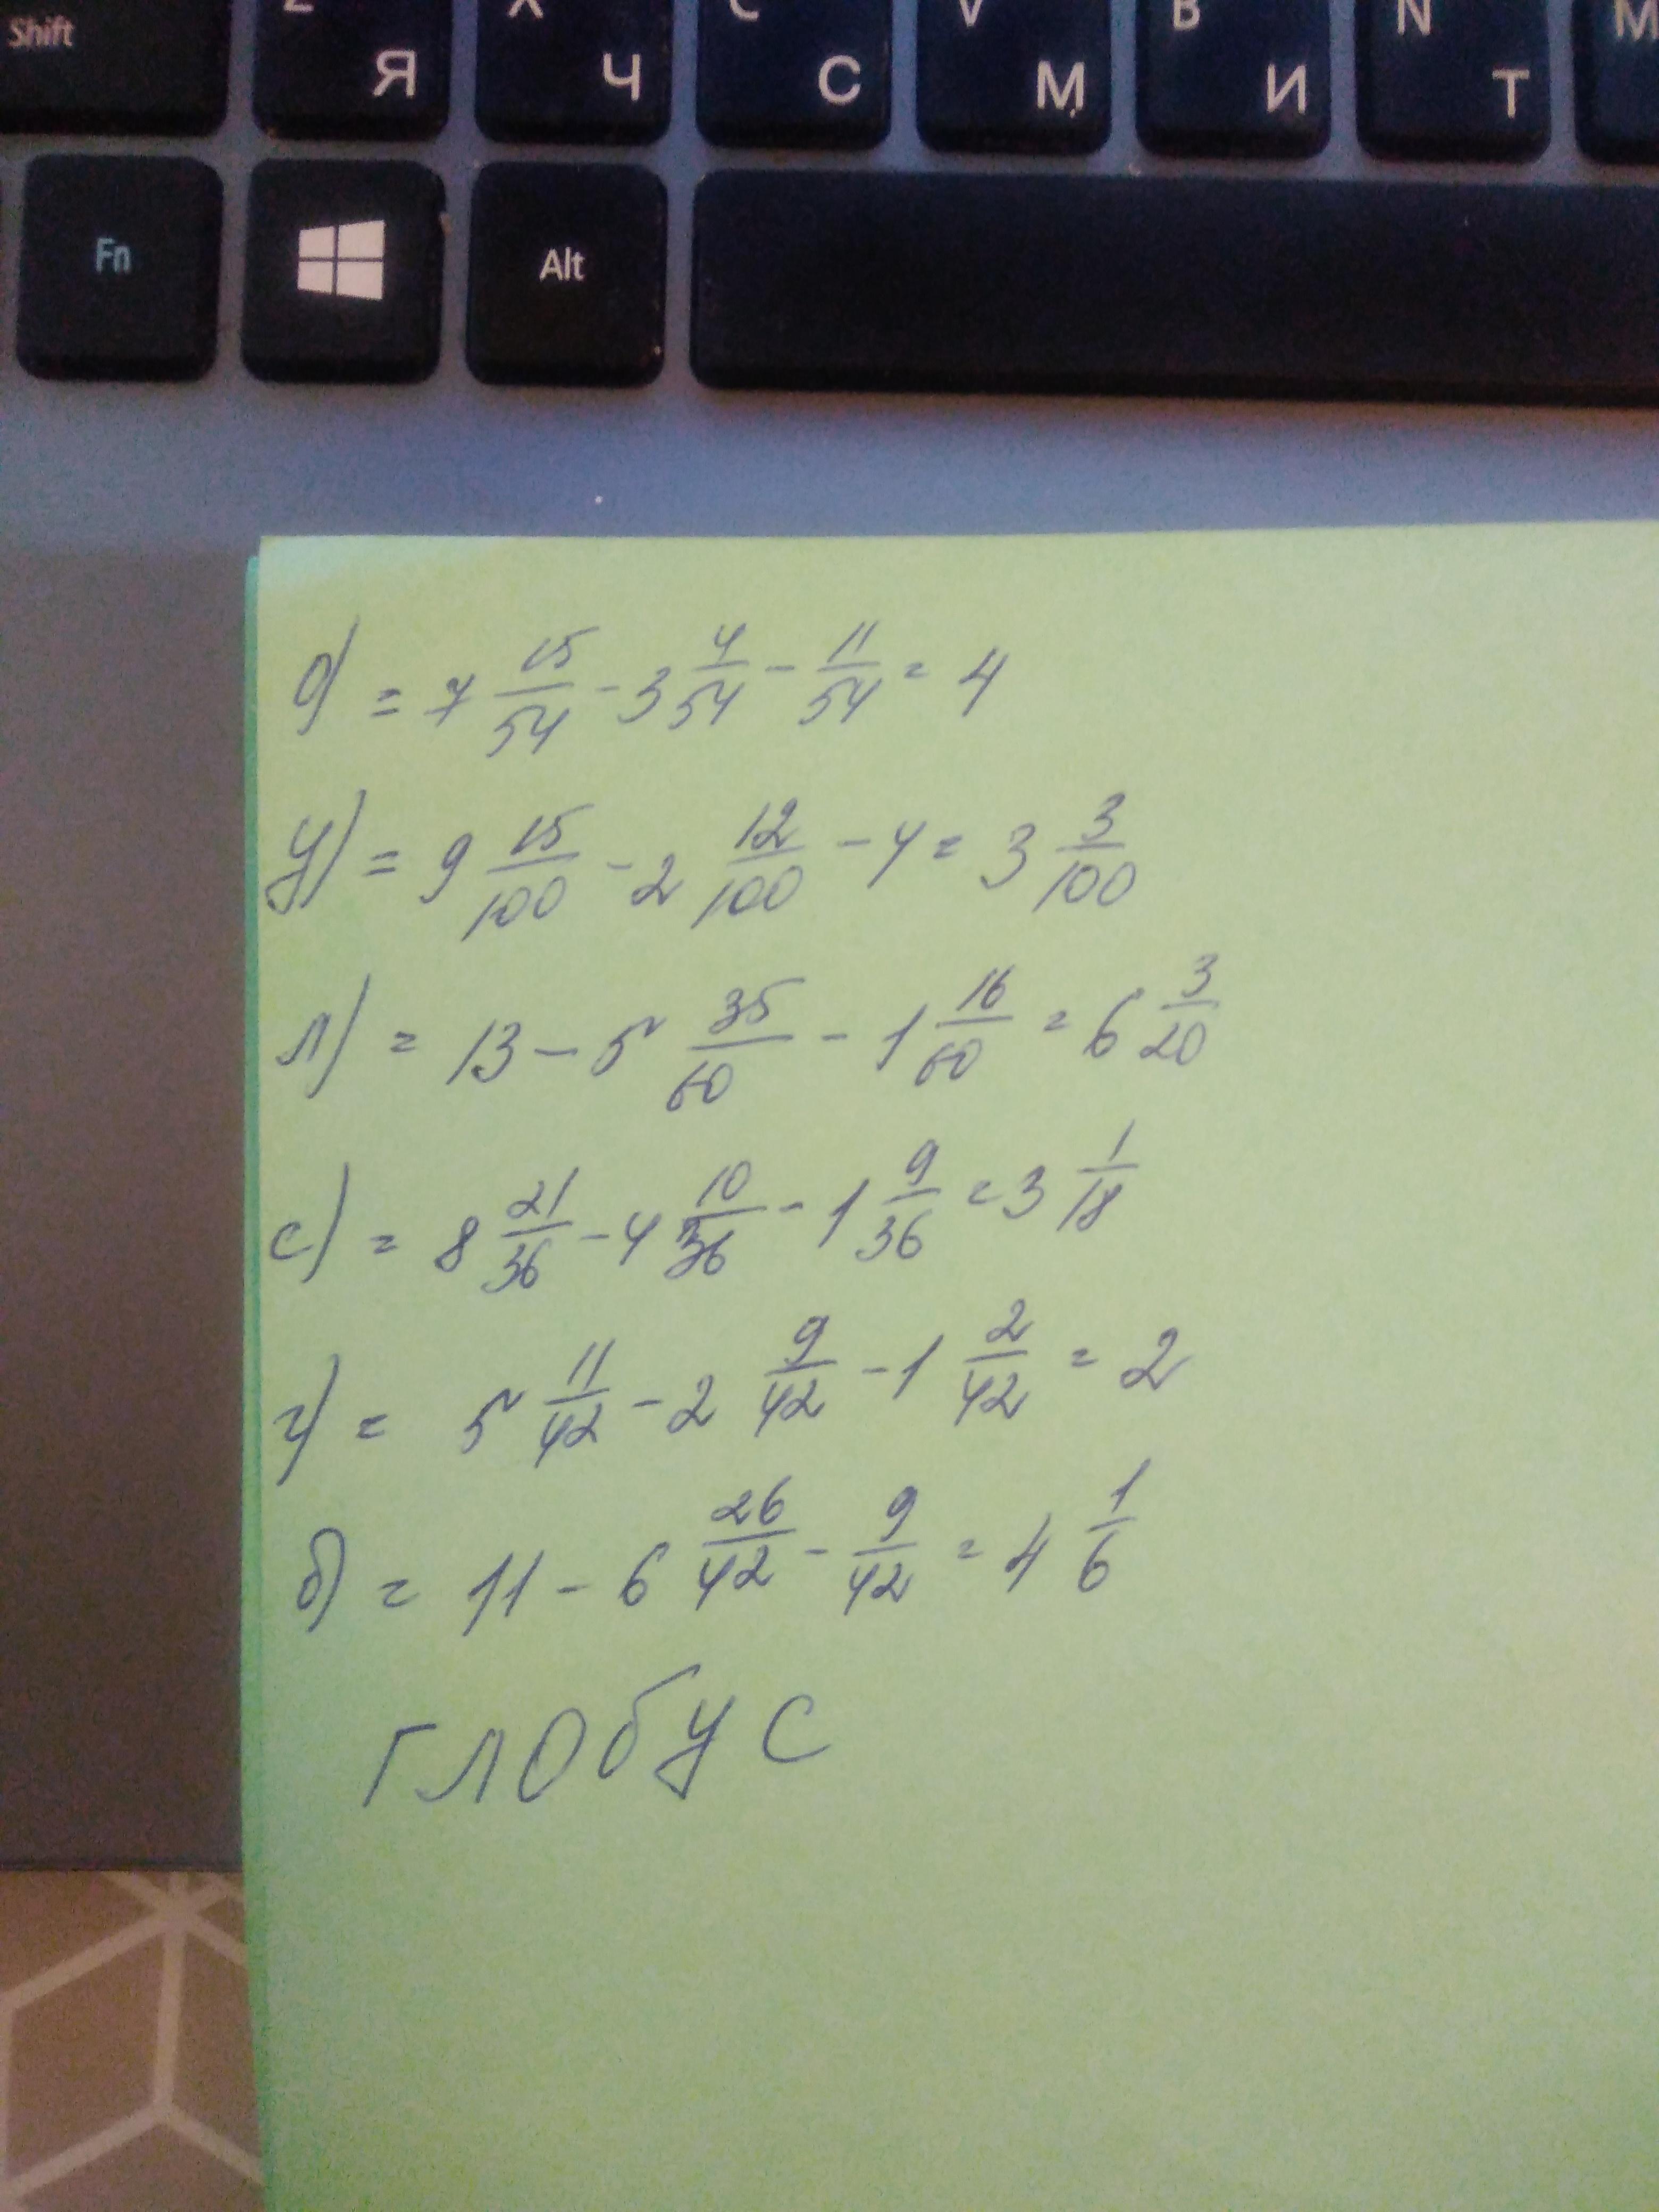 Shift Z Я X Ч C С V М B И N Т M
Fn Alt
о) = 7 15/54 - 3 4/54 - 11/54 = 4
у) = 9 15/100 - 2 12/100 - 4 = 3 3/100
л) = 13 - 5 35/60 - 1 16/60 = 6 3/20
с) = 8 21/36 - 4 10/36 - 1 9/36 = 3 1/18
г) = 5 11/42 - 2 9/42 - 1 2/42 = 2
б) = 11 - 6 26/42 - 9/42 = 4 1/6
глобус